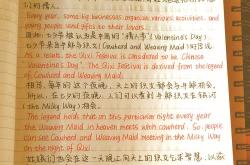 们的情人
Every year, some big businesses organize various activities, and
young people send gifts to their lovers
七夕节被认为是中国的"情人节"(Valentine's Day).
七夕节来自牛郎与织女(Cowherd and Weaving Maid)的传说
As a result, the Qixi Festival is considered to be Chinese
Valentine's Day. The Qixi Festival is derived from the legend
of Cowherd and Weaving Maid.
相传,每年的这个夜晚,天上的织女都会与牛郎相会,
所以,在七夕的夜晚,人们可以看到牛郎织女在银河
(the Milky Way)相会.
The legend holds that on this particular night every year
the Weaving Maid in heaven meets with cowherd. So, people
can see Cowherd and Weaving Maid meeting in the Milky Way
on the night of Qixi
姑娘们也会在这一天晚上向天上的织女乞求智慧,以求